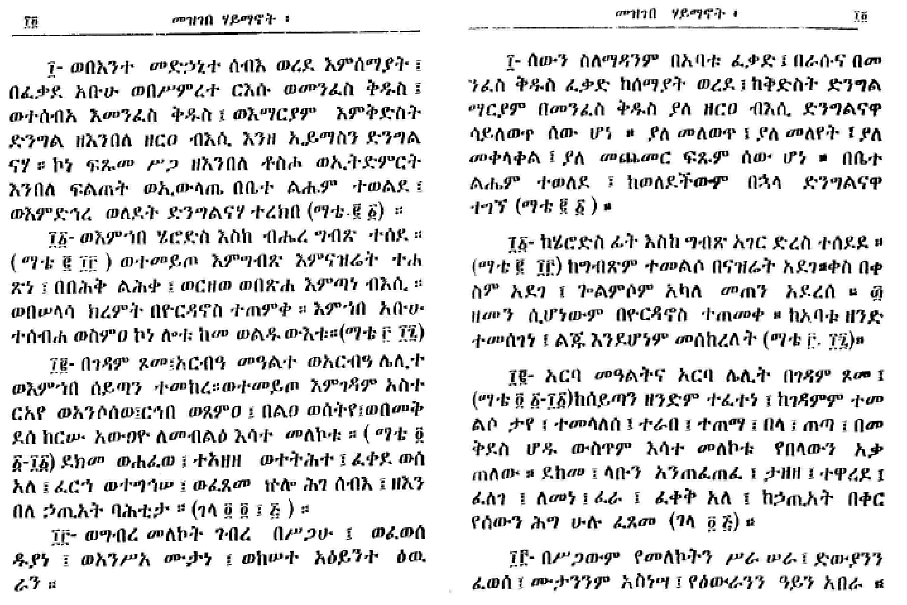 ፲፬ መዝገበ ሃይማኖት ፡
፲- ወበእንተ መድኃኒተ ሰብእ ወረደ እምሰማያት ፤
በፈቃደ አቡሁ ወበሥምረተ ርእሱ ወመንፈስ ቅዱስ ፤
ወተሰብአ እመንፈስ ቅዱስ ፤ ወእማርያም እምቅድስት
ድንግል ዘእንበለ ዘርዐ ብእሲ እንዘ ኢይማስን ድንግል
ናሃ ። ኮነ ፍጹመ ሥጋ ዘእንበለ ቶስሖ ወኢትድምርት
እንበለ ፍልጠት ወኢውላጤ በቤተ ልሔም ተወልደ ፤
ወእምድኅረ ወለደት ድንግልናሃ ተረክበ (ማቴ.፪ ፩) ።
፲፩- ወእምኀበ ሄሮድስ እስከ ብሔረ ግብጽ ተሰደ ።
( ማቴ ፪ ፲፫ ) ወተመይጦ እምግብጽ እምናዝሬት ተሐ
ጽነ ፤ በበሕቅ ልሕቀ ፤ ወርዘወ ወበጽሐ እምጣነ ብእሲ ።
ወበሠላሳ ክረምት በዮርዳኖስ ተጠምቀ ። እምኀበ አቡሁ
ተሰብሐ ወስምዐ ኮነ ሎቱ ከመ ወልዱ ውእቱ።(ማቴ ፫ ፲፯)
፲፪- በገዳም ጾመ፤አርብዓ መዓልተ ወአርብዓ ሌሊተ
ወእምኀበ ሰይጣን ተመከረ።ወተመይጦ እምገዳም አስተ
ርአየ ወአንሶሰወ፤ርኅበ ወጸምዐ ፤ በልዐ ወሰትየ፤ወበመቅ
ደሰ ከርሡ አውዐዮ ለመብልዕ እሳተ መለኮቱ ። ( ማቴ ፬
፩-፲፩) ደክመ ወሐፈወ ፤ ተአዘዘ ወተትሕተ ፤ ፈቀደ ወሰ
አለ ፤ ፈርኀ ወተግኅሠ ፤ ወፈጸመ ኵሎ ሕገ ሰብእ ፤ ዘእን
በለ ኃጢአት ባሕቲታ ። (ገላ ፬ ፬ ፤ ፭ )
፲፫- ወግብረ መለኮት ገብረ በሥጋሁ ፤ ወፈወሰ
ዱያነ ፤ ወአንሥአ ሙታነ ፤ ወከሠተ አዕይንተ ዕዉ
ራን ።
መዝገበ ሃይማኖት ፡ ፲፬
፲- ሰውን ስለማዳንም በአባቱ ፈቃድ ፤ በራሱና በመ
ንፈስ ቅዱስ ፈቃድ ከሰማያት ወረደ ፤ ከቅድስት ድንግል
ማርያም በመንፈስ ቅዱስ ያለ ዘርዐ ብእሲ ድንግልናዋ
ሳይለወጥ ሰው ሆነ ። ያለ መለወጥ ፤ ያለ መለየት ፤ ያለ
መቀላቀል ፤ ያለ መጨመር ፍጹም ሰው ሆነ ። በቤተ
ልሔም ተወለደ ፤ ከወለደችውም በኋላ ድንግልናዋ
ተገኘ (ማቴ ፪ ፩ ) ።
፲፩- ከሄሮድስ ፊት እስከ ግብፅ አገር ድረስ ተሰደደ ።
(ማቴ ፪ ፲፫) ከግብፅም ተመልሶ በናዝሬት አደገ።ቀስ በቀ
ስም አደገ ፤ ጐልምሶም አካለ መጠን አደረሰ ። ፴
ዘመን ሲሆነውም በዮርዳኖስ ተጠመቀ ። ከአባቱ ዘንድ
ተመሰገነ ፤ ልጁ እንደሆነም መሰከረለት (ማቴ ፫. ፲፯)።
፲፪- አርባ መዓልትና አርባ ሌሊት በገዳም ጾመ ፤
(ማቴ ፬ ፩-፲፩)ከሰይጣን ዘንድም ተፈተነ ፤ ከገዳምም ተመ
ልሶ ታየ ፤ ተመላለሰ ፤ ተራበ ፤ ተጠማ ፤ በላ ፤ ጠጣ ፤ በመ
ቅደስ ሆዱ ውስጥም እሳተ መለኮቱ የበላውን አቃ
ጠለው ። ደከመ ፤ ላቡን አንጠፈጠፈ ፤ ታዘዘ ፤ ተዋረደ ፤
ፈለገ ፤ ለመነ ፤ ፈራ ፤ ፈቀቅ አለ ፤ ከኃጢአት በቀር
የሰውን ሕግ ሁሉ ፈጸመ (ገላ ፬ ፭) ።
፲፫- በሥጋውም የመለኮትን ሥራ ሠራ ፤ ድውያንን
ፈወሰ ፤ ሙታንንም አስነሣ ፤ የዕውራንን ዓይን አበራ ።